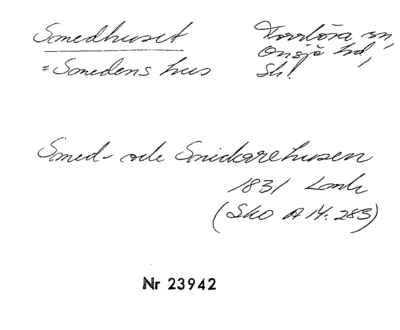 Smedhuset
= Smedens hus
Torrlösa sn,
Onsjö hd,
Sk!
Smed- och Snickarehusen
1831 Lantm
(Sko A 14: 283)
Nr 23942